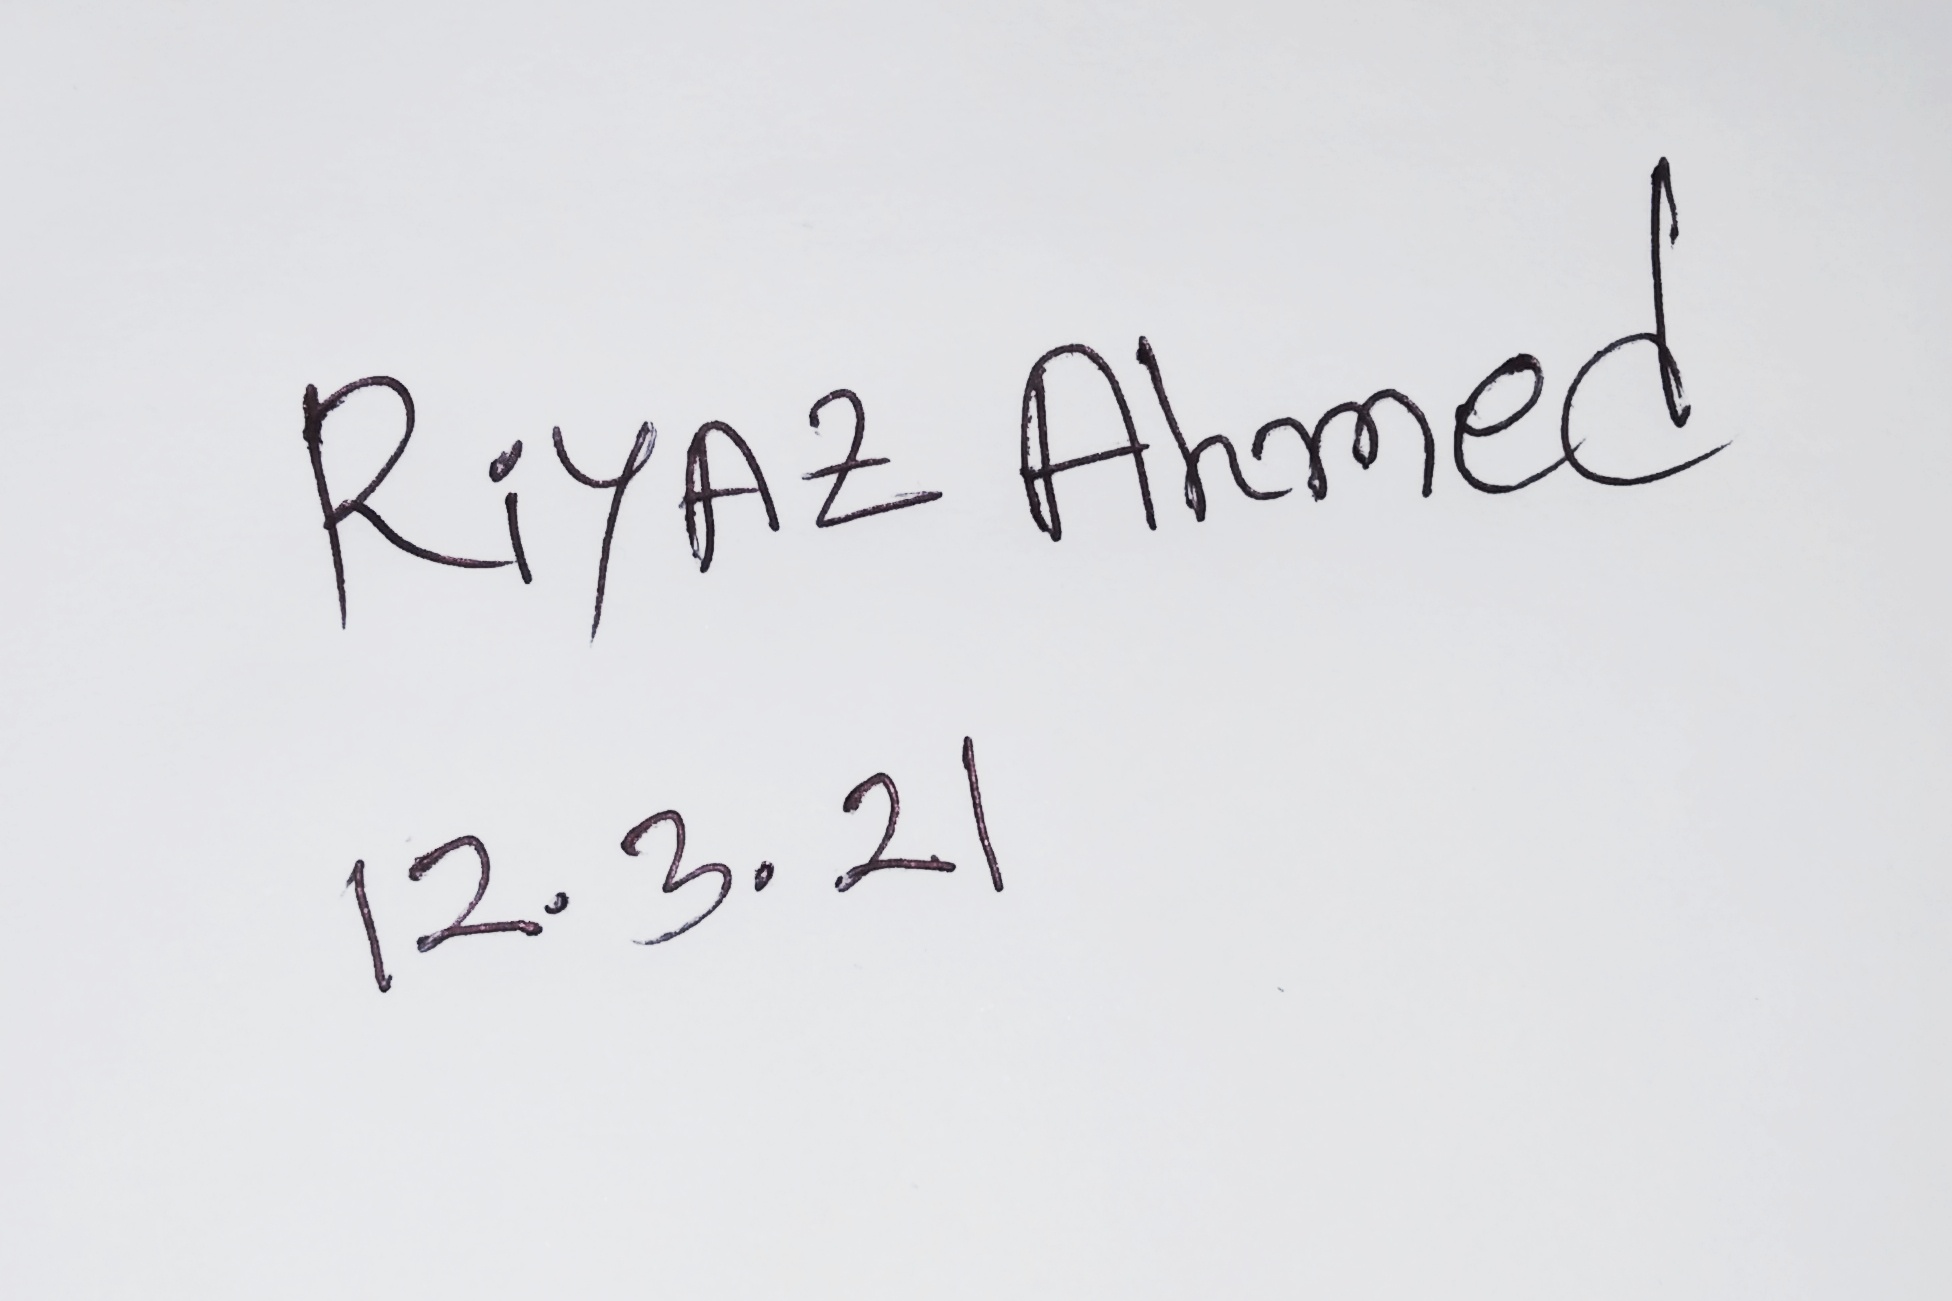 RiYAZ Ahmed
12.3.21